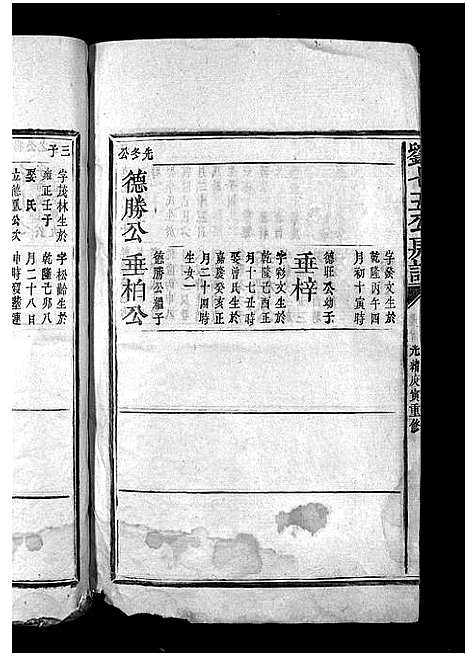 劉七五公房譜
光緒庚寅重修
字發文生於
乾隆丙午四
月初十寅時
垂梓
德旺公幼子
字彩文生於
乾隆己酉正
月十七丑時
娶曾氏生於
嘉慶癸亥正
月二十四時
生女一
先冬公
德勝公
垂柏公
德勝公繼子
三子
字茂林生於
雍正壬子
娶氏
字松齡生於
乾隆己卯八
月二十八日